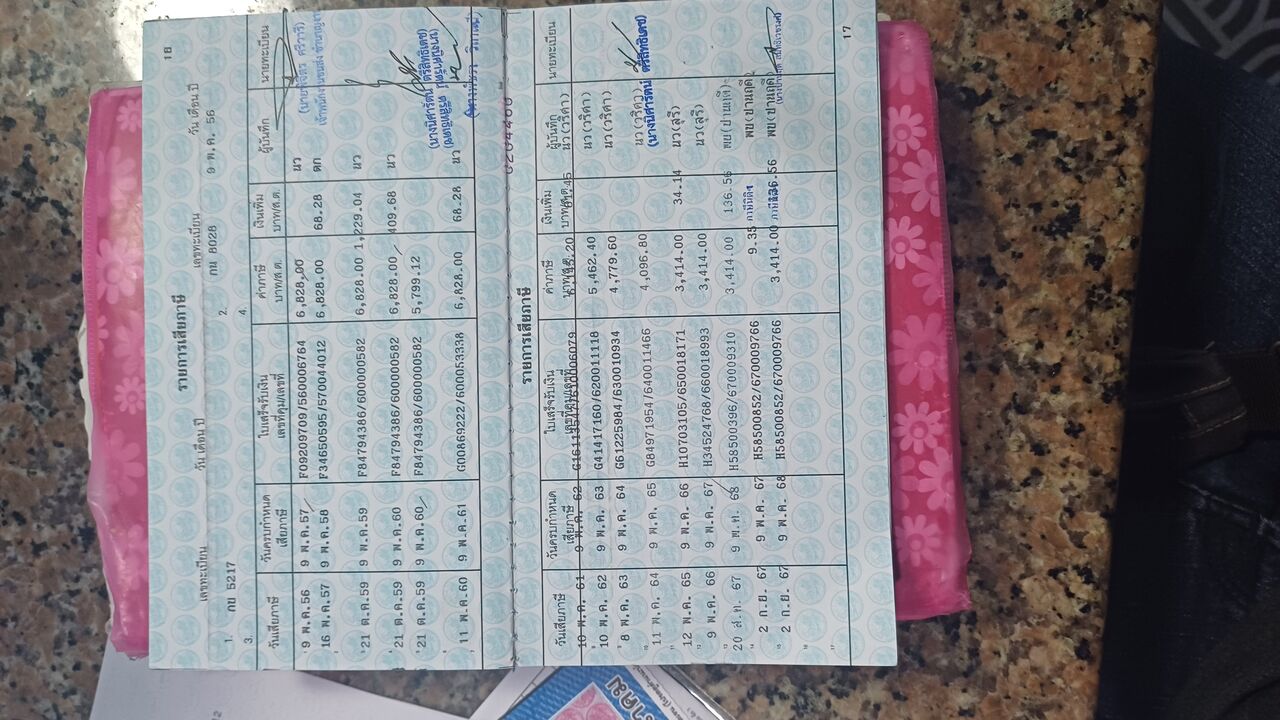 18
รายการเสียภาษี
เลขทะเบียน วัน เดือน ปี เลขทะเบียน วัน เดือน ปี
1. กย 5217 2. กน 8028 9 พ.ค. 56
3. 4.
วันเสียภาษี วันครบกำหนดเสียภาษี ใบเสร็จรับเงิน เล่มที่คุม/เลขที่ ค่าภาษี บาท/ส.ต. เงินเพิ่ม บาท/ส.ต. ผู้บันทึก นายทะเบียน
9 พ.ค.56 9 พ.ค.57 F09209709/560006764 6,828.00 นว
16 พ.ค.57 9 พ.ค.58 F34650595/570044012 6,828.00 68.28 ตก
21 ต.ค.59 9 พ.ค.59 F84794386/600000582 6,828.00 1,229.04 นว
21 ต.ค.59 9 พ.ค.60 F84794386/600000582 6,828.00 409.68 นว
21 ต.ค.59 9 พ.ค.60 F84794386/600000582 5,799.12
(นางนิศารัตน์ ตรีสิทธิเดช)
11 พ.ค.60 9 พ.ค.61 G00869222/600053338 6,828.00 68.28 นว
0204400
รายการเสียภาษี
วันเสียภาษี วันครบกำหนดเสียภาษี ใบเสร็จรับเงิน ค่าภาษี เงินเพิ่ม บาท/ส.ต. ผู้บันทึก นายทะเบียน
10 พ.ค. 61 9 พ.ค. 62 นว(วริศา)
10 พ.ค. 62 9 พ.ค. 63 G41417160/620011118 5,462.40 นว(วริศา)
8 พ.ค. 63 9 พ.ค. 64 G61225984/630010934 4,779.60
11 พ.ค. 64 9 พ.ค. 65 G84971954/640011466 4,096.80 นว(วริศา)
(นางนิศารัตน์ ตรีสิทธิเดช)
12 พ.ค. 65 9 พ.ค. 66 H10703105/650018171 3,414.00 34.14 นว(สุรี)
9 พ.ค. 66 9 พ.ค. 67 H34524768/660018993 3,414.00 นว(สุรี)
20 ส.ค. 67 9 พ.ค. 68 H58500396/670009310 3,414.00 136.56 พย(ปานฤดี)
2 ก.ย. 67 9 พ.ค. 67 H58500852/670009766 9.35 ภาษีนิติฯ พย(ปานฤดี)
2 ก.ย. 67 9 พ.ค. 68 H58500852/670009766 3,414.00 136.56 พย(ปานฤดี)
17